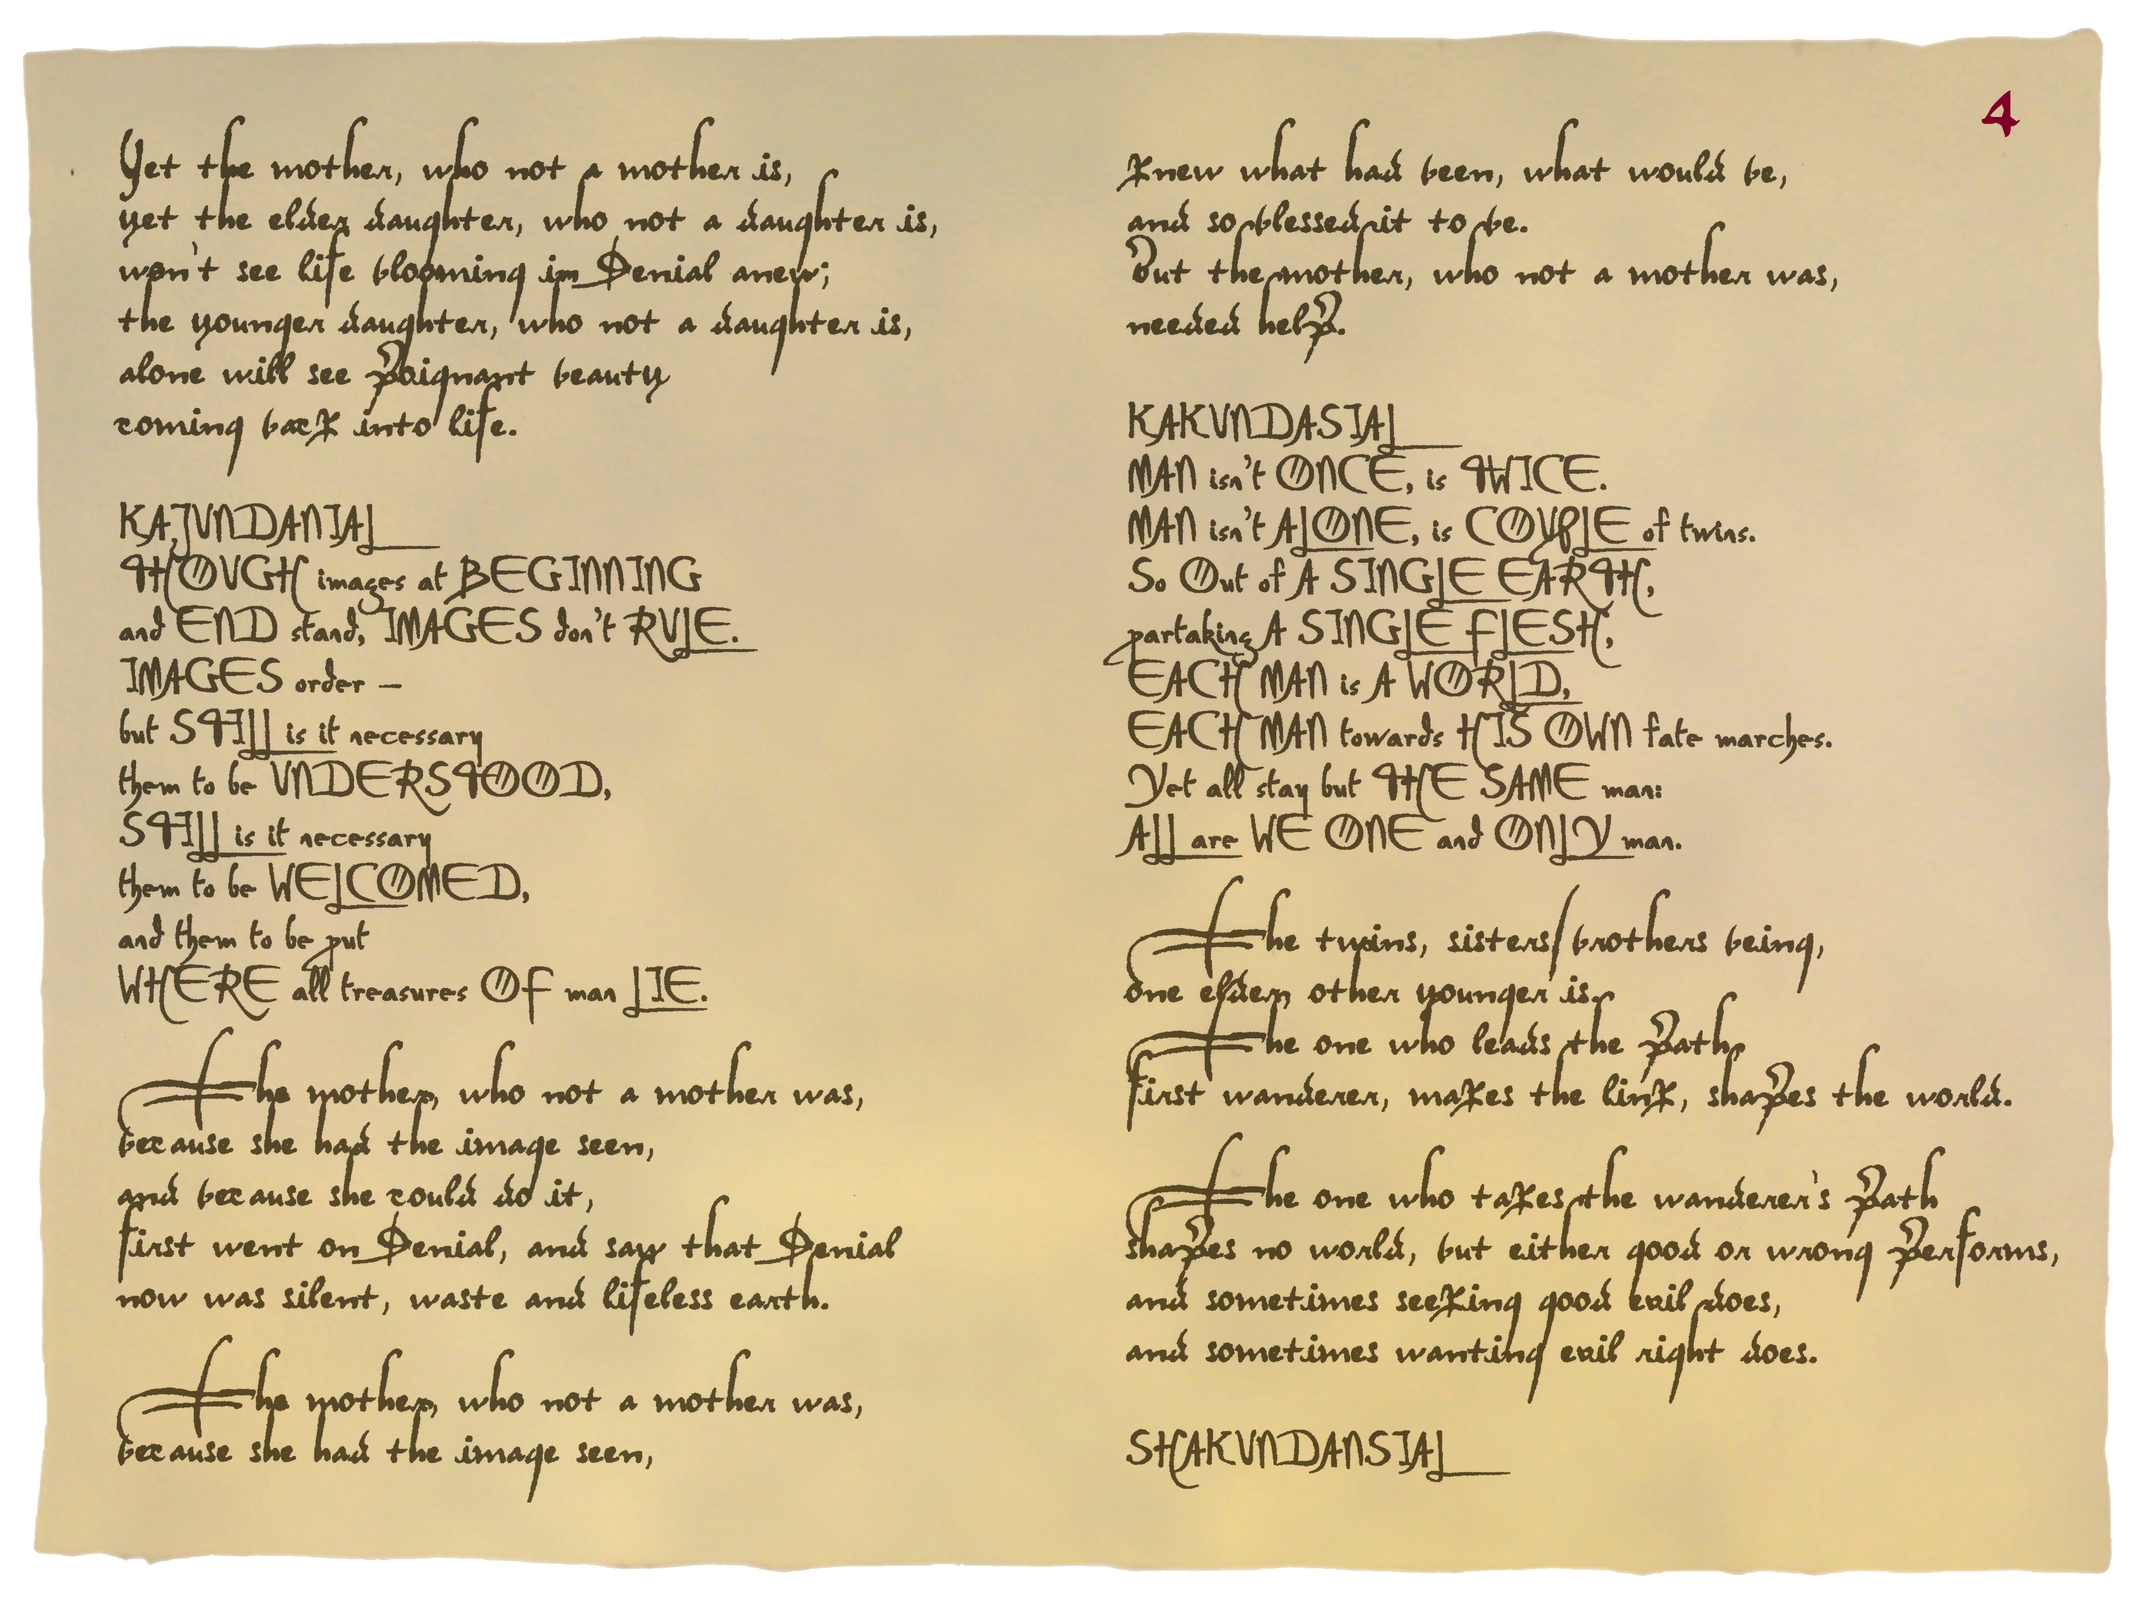 Yet the mother, who not a mother is,
yet the elder daughter, who not a daughter is,
won't see life blooming in Denial anew;
the younger daughter, who not a daughter is,
alone will see poignant beauty
coming back into life.
KAJUNDANIAL
THOUGH images at BEGINNING
and END stand, IMAGES don't RULE.
IMAGES order —
but STILL is it necessary
them to be UNDERSTOOD,
STILL is it necessary
them to be WELCOMED,
and them to be put
WHERE all treasures OF man LIE.
The mother, who not a mother was,
because she had the image seen,
and because she could do it,
first went on Denial, and saw that Denial
now was silent, waste and lifeless earth.
The mother, who not a mother was,
because she had the image seen,
4
knew what had been, what would be,
and so blessed it to be.
But the mother, who not a mother was,
needed help.
KAKUNDASIAL
MAN isn't ONCE, is TWICE.
MAN isn't ALONE, is COUPLE of twins.
So Out of A SINGLE EARTH,
partaking A SINGLE FLESH,
EACH MAN is A WORLD,
EACH MAN towards HIS OWN fate marches.
Yet all stay but THE SAME man:
ALL are WE ONE and ONLY man.
The twins, sisters/brothers being,
one elder, other younger is.
The one who leads the path,
first wanderer, makes the link, shapes the world.
The one who takes the wanderer's path
shapes no world, but either good or wrong performs,
and sometimes seeking good evil does,
and sometimes wanting evil right does.
SHAKUNDANSIAL